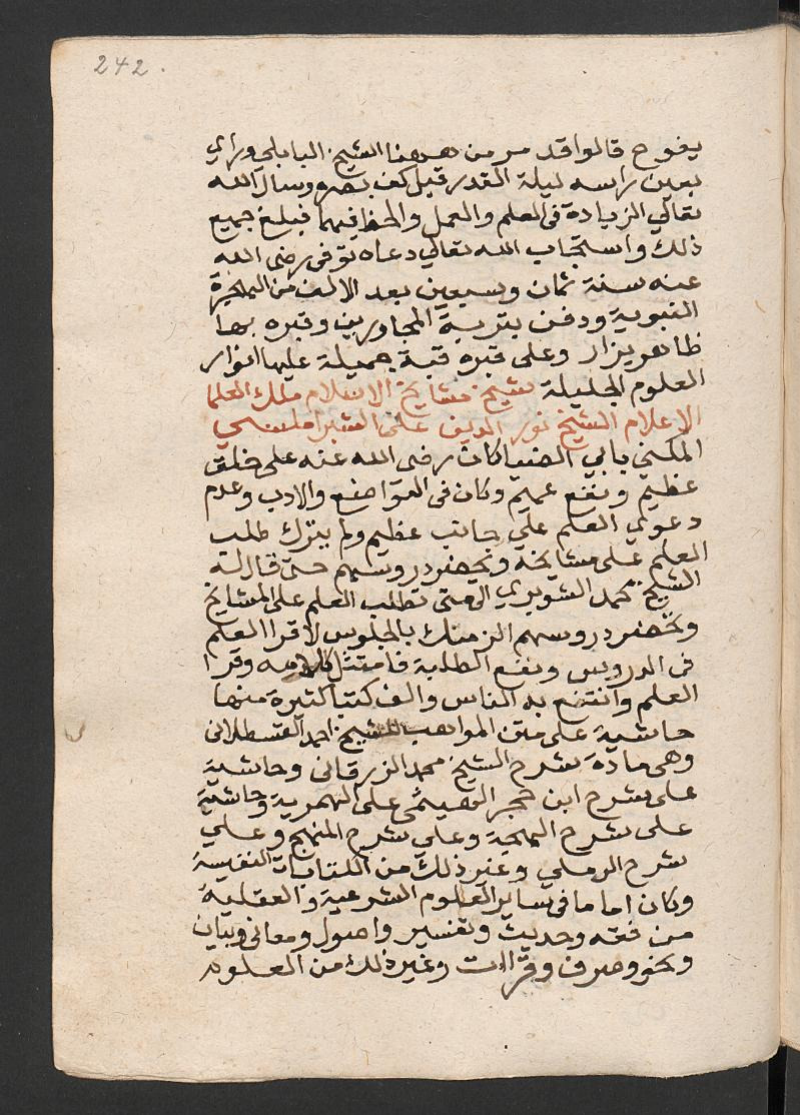 242.
يفوح قالوا قد مر من ههنا الشيخ البابلي وراي
بعين راسه ليلة القدر قبل كف بصره وسال الله
تعالي الزيادة في العلم والعمل والحفظ فيهما فبلغ جميع
ذلك واستجاب الله تعالي دعاه توفى رضى الله
عنه سنة ثمان وسبعين بعد الالف من الهجرة
النبوية ودفن بتربة المجاورين وقبره بها
ظاهر يزار وعلى قبره قبة جميلة عليها انوار
العلوم الجليلة شيخ مشايخ الاسلام ملك العلما
الاعلام الشيخ نور الدين على الشبراملسي
المكني بابي الضيا كان رضى الله عنه على خلق
عظيم ونفع عميم وكان في التواضع والادب وعدم
دعوي العلم علي جانب عظيم ولم يترك طلب
العلم على مشايخه ويحضر دروسهم حتى قال له
الشيخ محمد الشوبري الى متى تطلب العلم على المشايخ
وتحضر دروسهم الزمتك بالجلوس لاقرا العلم
في الدروس ونفع الطلبة فامتثل كلامه وقرا
العلم وانتفع به الناس والف كتبا كثيرة منها
حاشية على متن المواهب للشيخ احمد القسطلانى
وهى مادة شرح الشيخ محمد الزرقانى وحاشية
على شرح ابن حجر الهيتمى على الهمزية وحاشية
على شرح البهجة وعلي شرح المنهج وعلي
شرح الرملي وغير ذلك من الكتابات النفيسة
وكان اماما في ساير العلوم الشرعية والعقلية
من فقه وحديث وتفسير واصول ومعانى وبيان
ونحو وصرف وقراات وغير ذلك من العلوم